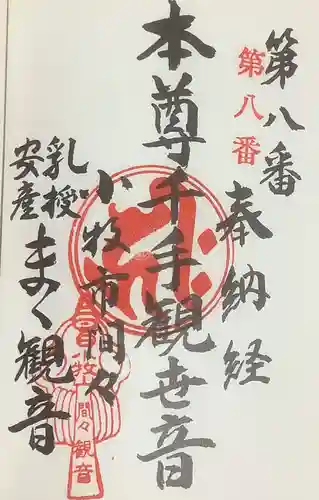 第八番
第八番
奉納経
本尊千手観世音
小牧市間々
乳授
安産
まゝ観音
小牧山間々観音